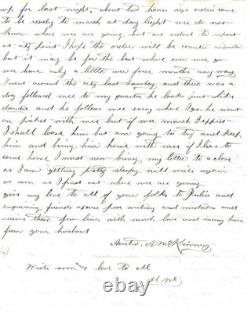 up for last night, about two hours ago orders came
to be ready to march at day light we do not
know where we are going but are ordered to report
at city point I hope the orders will be countermanded
but it may be for the best where ever we go
we have only a little over four months any way.
I was in the city last tuesday and there was a
dog followed me to my quarters he looks just like
and he follows me every where I go he went
on picket with me but if we march I expect
I shall loose him but am going to try and keep
him and bring him home with me if I live to
come home I must now bring my letter to a close
as I am getting pretty sleepy will write again
as soon as I find out where we are going
give my love to all of your folks to Julia and
enquiring friends excuse poor writing and mistakes and
these few lines with much love and many kisses
from your husband
McKinney
Write soon love to all